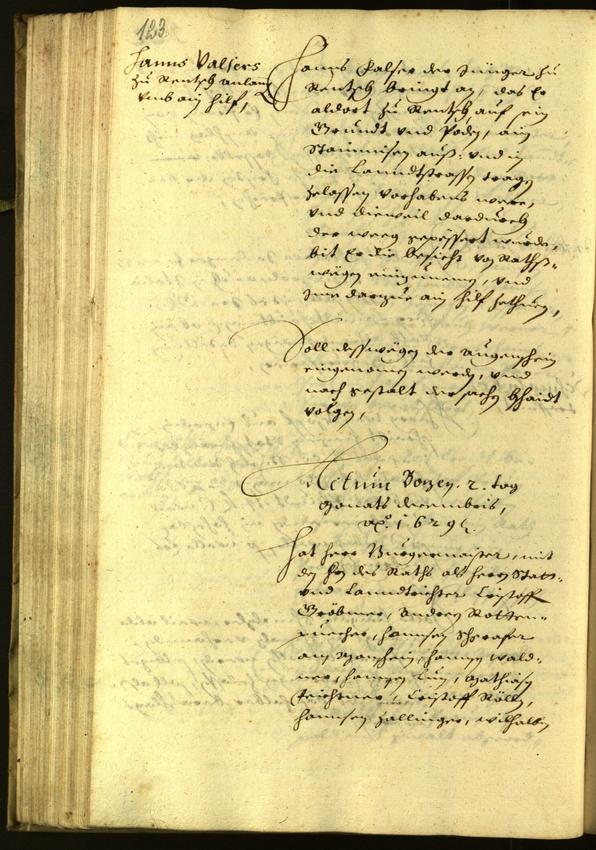 123.
Hanns Valsers
zu Rentsch anlang
umb ain hilf,
Hanns Falser der Jünger zu
Rentsch bringt an, das Er
aldort zu Rentsch, auf sein
Grundt und Poden, ain
auß: und in
die Lanndtstrassen tragen
zelassen vorhabens were,
und dieweil dardurch
der weeg gepessert wurde,
bit Er die besicht von Raths-
wegen einzunemen, und
Ime darzue ain hilf zethuen,
Soll desswegen der augenschein
eingenomen werden, und
nach gestalt der sachen bschaidt
volgen,
Actum Bozen. 2. tag
Monats decembris,
ao. 1629.
Hat herr Burgermaister, mit
den hern des Raths als herrn Statt-
und Lanndtrichter Cristoff
Gröbmer, Andreen Rotten-
puecher, Hannsen Schrafer
am Hannsen Wald-
ner, Hannsen Mathiasen
Cristoff
Hannsen Zallinger, Wilhalbm